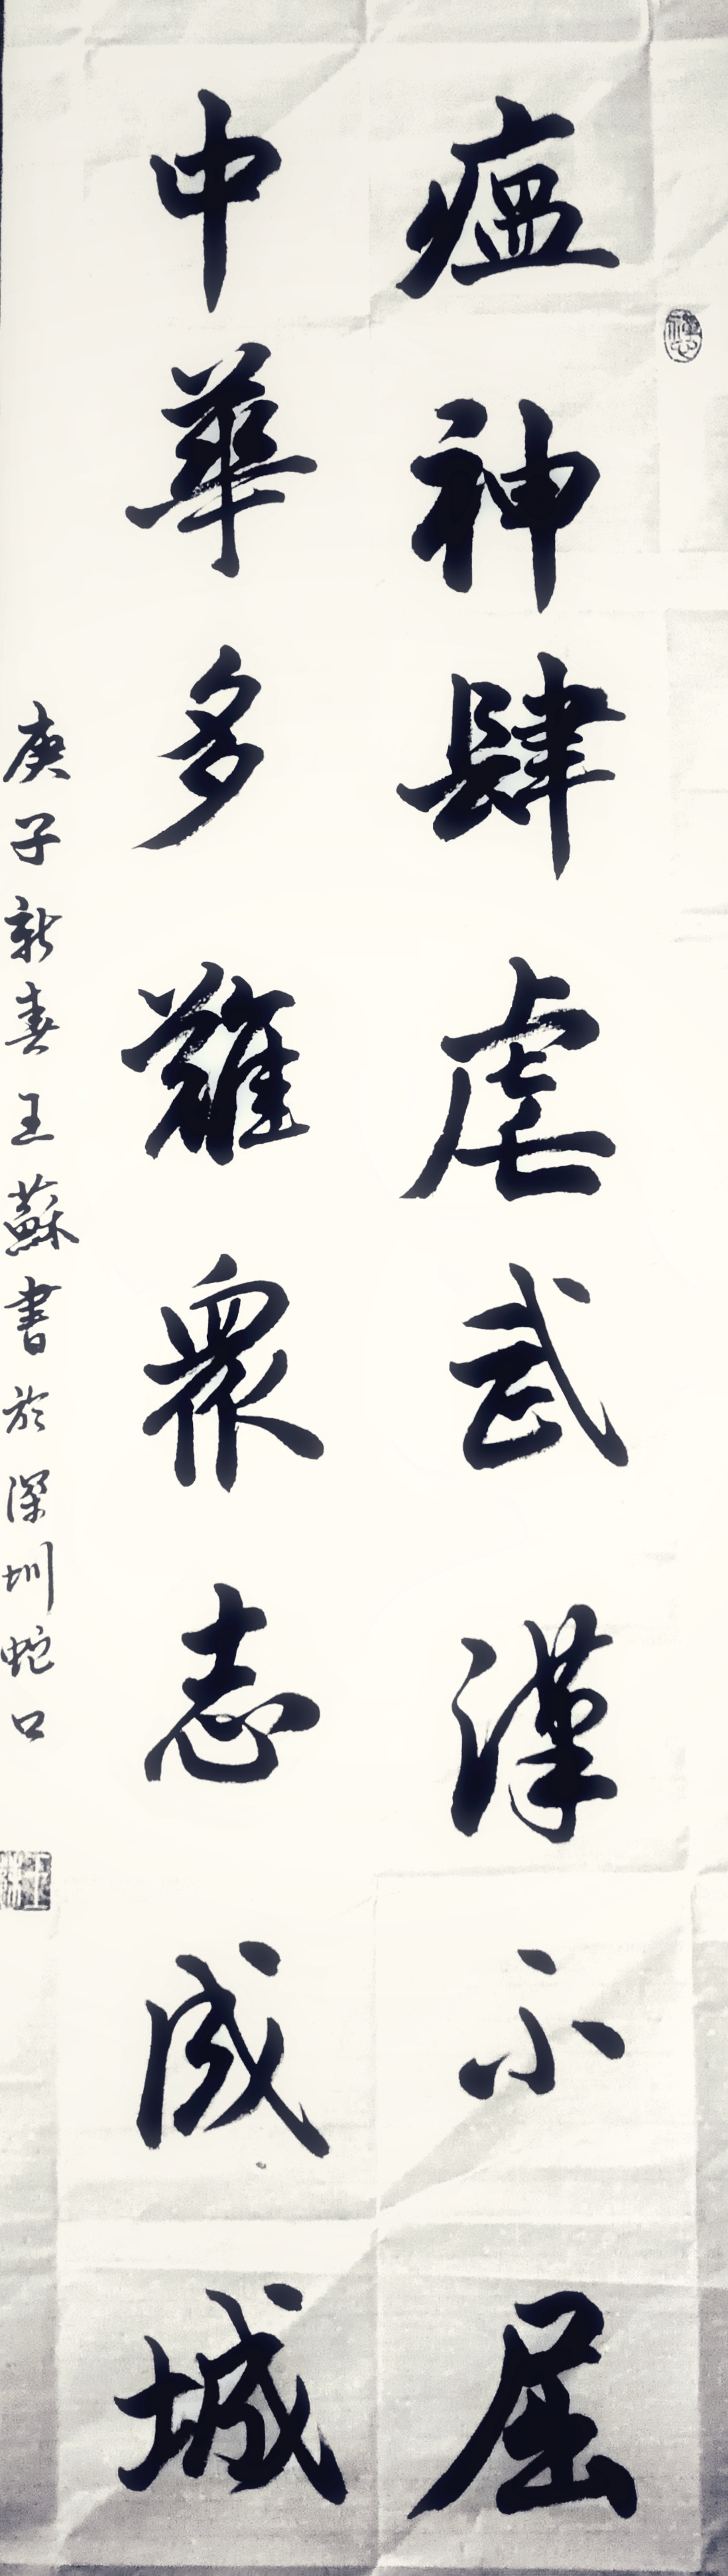 瘟神肆虐武漢不屈
中華多難衆志成城
庚子新春王蘇書於深圳蛇口